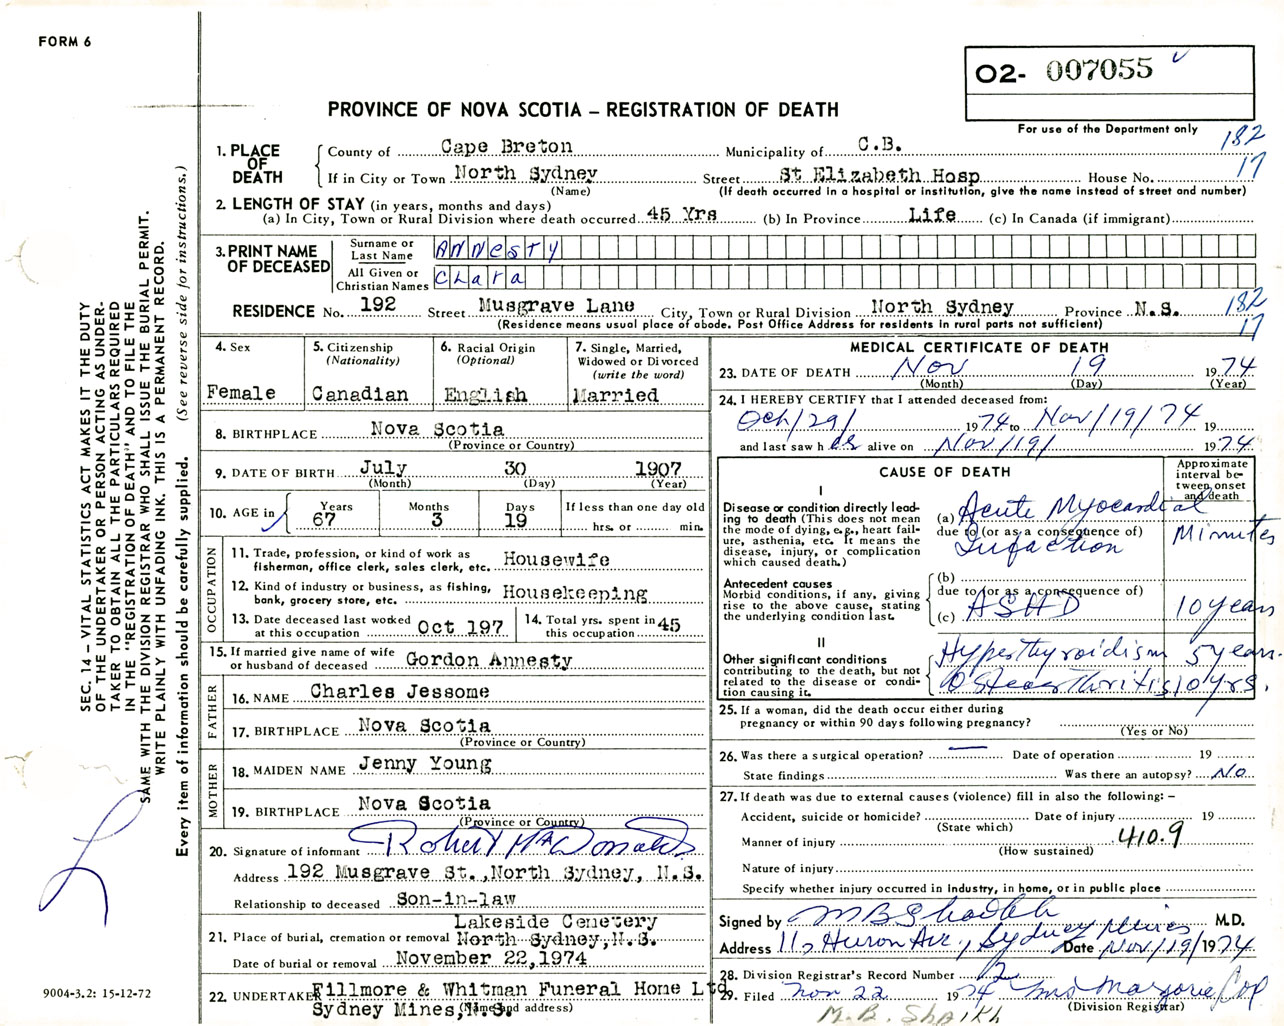 FORM 6
O2- 007055
PROVINCE OF NOVA SCOTIA – REGISTRATION OF DEATH
For use of the Department only
182
17
1. PLACE OF DEATH
County of Cape Breton Municipality of C.B.
If in City or Town North Sydney Street St Elizabeth Hosp House No.
(Name) (If death occurred in a hospital or institution, give the name instead of street and number)
2. LENGTH OF STAY (in years, months and days)
(a) In City, Town or Rural Division where death occurred 45 Yrs (b) In Province Life (c) In Canada (if immigrant)
3. PRINT NAME OF DECEASED
Surname or Last Name ANNESTY
All Given or Christian Names CLARA
RESIDENCE No. 192 Street Musgrave Lane City, Town or Rural Division North Sydney Province N.S.
(Residence means usual place of abode. Post Office Address for residents in rural parts not sufficient)
182
17
4. Sex
Female
5. Citizenship (Nationality)
Canadian
6. Racial Origin (Optional)
English
7. Single, Married, Widowed or Divorced (write the word)
Married
8. BIRTHPLACE Nova Scotia
(Province or Country)
9. DATE OF BIRTH July 30 1907
(Month) (Day) (Year)
10. AGE in
Years Months Days If less than one day old
67 3 19 hrs. or min.
OCCUPATION
11. Trade, profession, or kind of work as fisherman, office clerk, sales clerk, etc. Housewife
12. Kind of industry or business, as fishing, bank, grocery store, etc. Housekeeping
13. Date deceased last worked at this occupation Oct 197
14. Total yrs. spent in this occupation 45
15. If married give name of wife or husband of deceased Gordon Annesty
FATHER
16. NAME Charles Jessome
17. BIRTHPLACE Nova Scotia
(Province or Country)
MOTHER
18. MAIDEN NAME Jenny Young
19. BIRTHPLACE Nova Scotia
(Province or Country)
20. Signature of informant Robert MacDonald
Address 192 Musgrave St.,North Sydney, N.S.
Relationship to deceased Son-in-law
Lakeside Cemetery
21. Place of burial, cremation or removal North Sydney,N.S.
Date of burial or removal November 22,1974
22. UNDERTAKER Fillmore & Whitman Funeral Home Ltd
Sydney Mines,N.S. (Name and address)
MEDICAL CERTIFICATE OF DEATH
23. DATE OF DEATH Nov 19 1974
(Month) (Day) (Year)
24. I HEREBY CERTIFY that I attended deceased from:
Oct/29/ 1974 to Nov/19/74 19
and last saw her alive on Nov/19/ 1974
CAUSE OF DEATH
Approximate interval between onset and death
I
Disease or condition directly leading to death (This does not mean the mode of dying, e.g., heart failure, asthenia, etc. It means the disease, injury, or complication which caused death.)
(a) Acute Myocardial
due to (or as a consequence of)
Infaction
Minutes
Antecedent causes
Morbid conditions, if any, giving rise to the above cause, stating the underlying condition last.
(b)
due to (or as a consequence of)
(c) ASHD 10 years
II
Other significant conditions
contributing to the death, but not related to the disease or condition causing it.
Hyperthyroidism 5 years.
Osteoarthritis 10 yrs.
25. If a woman, did the death occur either during pregnancy or within 90 days following pregnancy?
(Yes or No)
26. Was there a surgical operation? — Date of operation 19
State findings Was there an autopsy? No
27. If death was due to external causes (violence) fill in also the following: –
Accident, suicide or homicide? Date of injury 19
(State which)
Manner of injury 410.9
(How sustained)
Nature of injury
Specify whether injury occurred in Industry, in home, or in public place
Signed by M B Shaikh M.D.
Address 110 Huron Ave., Sydney Mines Date Nov/19/1974
28. Division Registrar's Record Number
29. Filed Nov 22 1974 Mrs Marjorie
(Division Registrar)
M.B. Shaikh
SEC. 14 – VITAL STATISTICS ACT MAKES IT THE DUTY
OF THE UNDERTAKER OR PERSON ACTING AS UNDER-
TAKER TO OBTAIN ALL THE PARTICULARS REQUIRED
IN THE "REGISTRATION OF DEATH" AND TO FILE THE
SAME WITH THE DIVISION REGISTRAR WHO SHALL ISSUE THE BURIAL PERMIT.
WRITE PLAINLY WITH UNFADING INK. THIS IS A PERMANENT RECORD.
Every item of information should be carefully supplied. (See reverse side for instructions.)
9004-3.2: 15-12-72